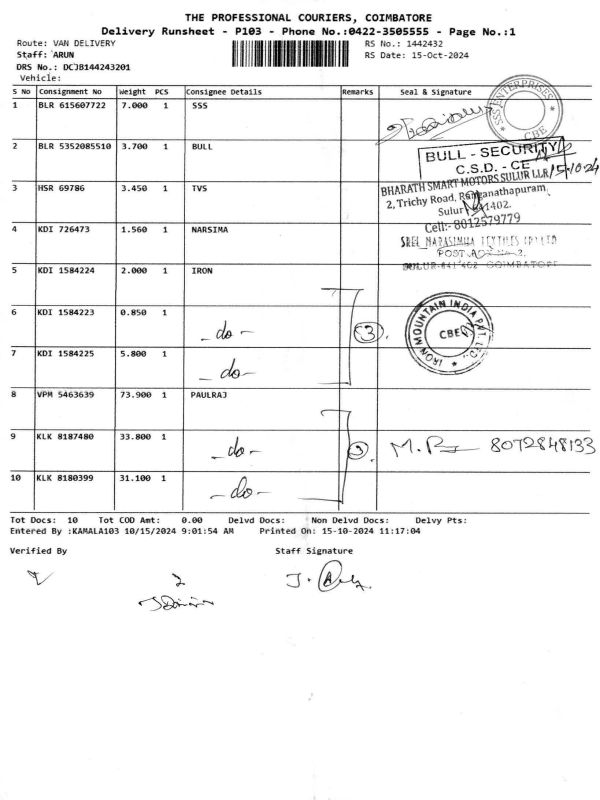 THE PROFESSIONAL COURIERS, COIMBATORE
Delivery Runsheet - P103 - Phone No.:0422-3505555 - Page No.:1
Route: VAN DELIVERY
RS No.: 1442432
Staff: ARUN
RS Date: 15-Oct-2024
DRS No.: DCJB144243201
Vehicle:
S No Consignment No Weight PCS Consignee Details Remarks Seal & Signature
1 BLR 615607722 7.000 1 SSS
SSS ENTERPRISES * CBE *
2 BLR 5352085510 3.700 1 BULL
BULL - SECURITY
C.S.D. - CE
15-10-24
3 HSR 69786 3.450 1 TVS
BHARATH SMART MOTORS SULUR LLP
2, Trichy Road, Ranganathapuram,
Sulur 641402.
Cell:- 8012579779
4 KDI 726473 1.560 1 NARSIMA
SREE NARASIMHA TEXTILES (P) LTD
POST
SULUR-641 402 COIMBATORE
5 KDI 1584224 2.000 1 IRON
6 KDI 1584223 0.850 1 - do -
3
IRON MOUNTAIN INDIA PVT. LTD. * CBE
7 KDI 1584225 5.800 1 - do -
8 VPM 5463639 73.900 1 PAULRAJ
9 KLK 8187480 33.800 1 - do -
8072848133
10 KLK 8180399 31.100 1 - do -
Tot Docs: 10 Tot COD Amt: 0.00 Delvd Docs: Non Delvd Docs: Delvy Pts:
Entered By :KAMALA103 10/15/2024 9:01:54 AM Printed On: 15-10-2024 11:17:04
Verified By Staff Signature